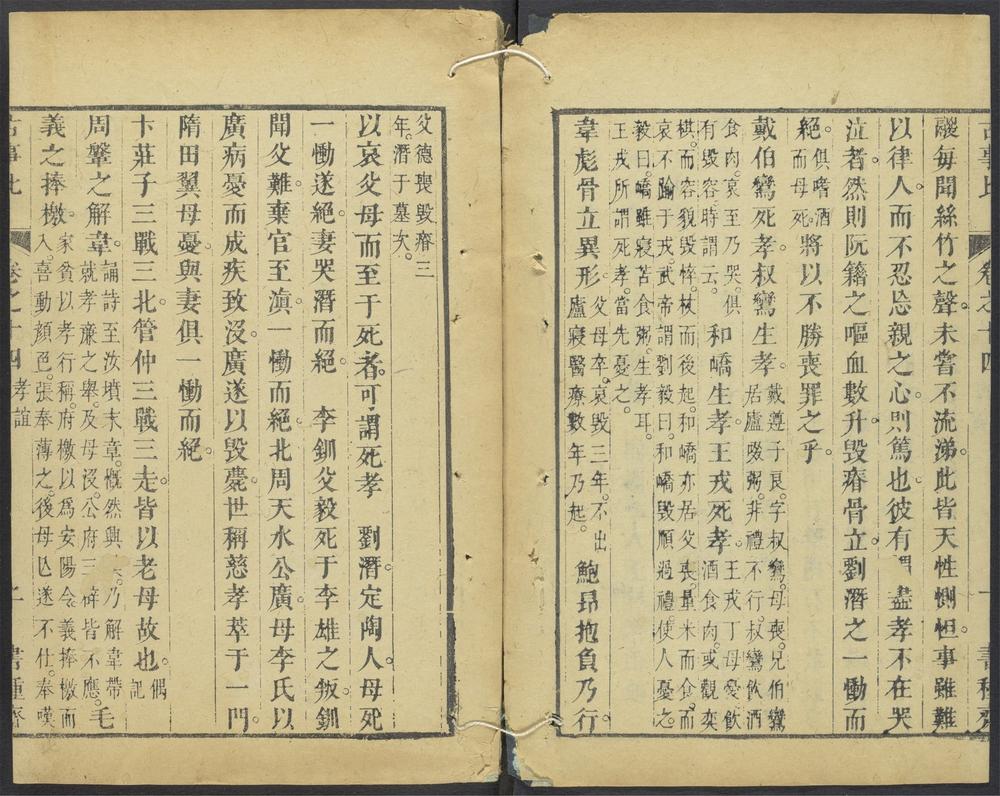 卷之十四
一 書種
融每聞絲竹之聲未嘗不流涕。此皆天性惻怛。事雖難
以律人。而不忍忘親之心。則篤也。彼有謂盡孝不在哭
泣者。然則阮籍之嘔血數升。毀瘠骨立。劉潛之一慟而
絕。俱嗜酒而母死。將以不勝喪罪之乎。
戴伯鸞死孝。叔鸞生孝。戴遵子良。字叔鸞。母喪。兄伯鸞居廬啜粥。非禮不行。叔鸞飲酒
食肉。哀至乃哭。俱有毀容時謂云。和嶠生孝。王戎死孝。王戎丁母憂。飲酒食肉。或觀奕
棋。而容貌毀悴。杖而後起。和嶠亦居父喪。量米而食。而哀不踰于戎。武帝謂劉毅曰。和嶠毀順過禮。使人憂之。
毅曰。嶠雖寢苫食粥。生孝耳。王戎所謂死孝。當先憂之。
韋彪骨立異形。父母卒。哀毀三年。不出廬寢醫療數年乃起。鮑昂抱負乃行。
父德喪毀瘠三年。潛于墓次。
以哀父母而至于死者。可謂死孝 劉潛定陶人。母死
一慟遂絕。妻哭潛而絕。 李釧父毅死于李雄之叛。釧
聞父難。棄官至滇。一慟而絕。北周天水公廣。母李氏以
廣病憂而成疾致沒。廣遂以毀薨。世稱慈孝萃于一門。
隋田翼母憂。與妻俱一慟而絕。
卞莊子三戰三北。管仲三戰三走。皆以老母故也。偶記
周磐之解韋。誦詩至汝墳末章。慨然興乃解韋帶就孝廉之舉。及母沒。公府三辟皆不應。毛
義之捧檄。家貧以孝行稱。府檄以爲安陽令。義捧檄而入。喜動顏色。張奉薄之。後母亡。遂不仕。奉嘆
卷之十四 孝誼
二 書種齋